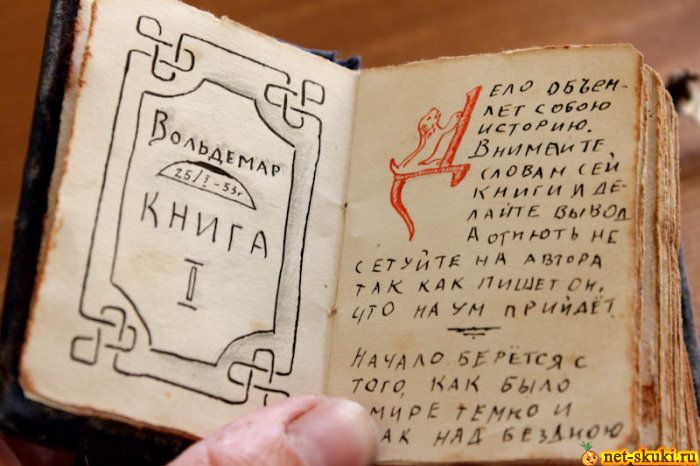 Вольдемар
25/I – 53г
КНИГА
II
ДЕЛО ОБЪЕМ-
ЛЕТ СОБОЮ
ИСТОРИЮ.
ВНИМАЙТЕ
СЛОВАМ СЕЙ
КНИГИ И ДЕ-
ЛАЙТЕ ВЫВОД
А ОТНЮТЬ НЕ
СЕТУЙТЕ НА АВТОРА
ТАК КАК ПИШЕТ ОН,
ЧТО НА УМ ПРИЙДЁТ.
НАЧАЛО БЕРЁТСЯ С
ТОГО, КАК БЫЛО
МИРЕ ТЕМНО И
АК НАД БЕЗДНОЮ
net-skuki.ru